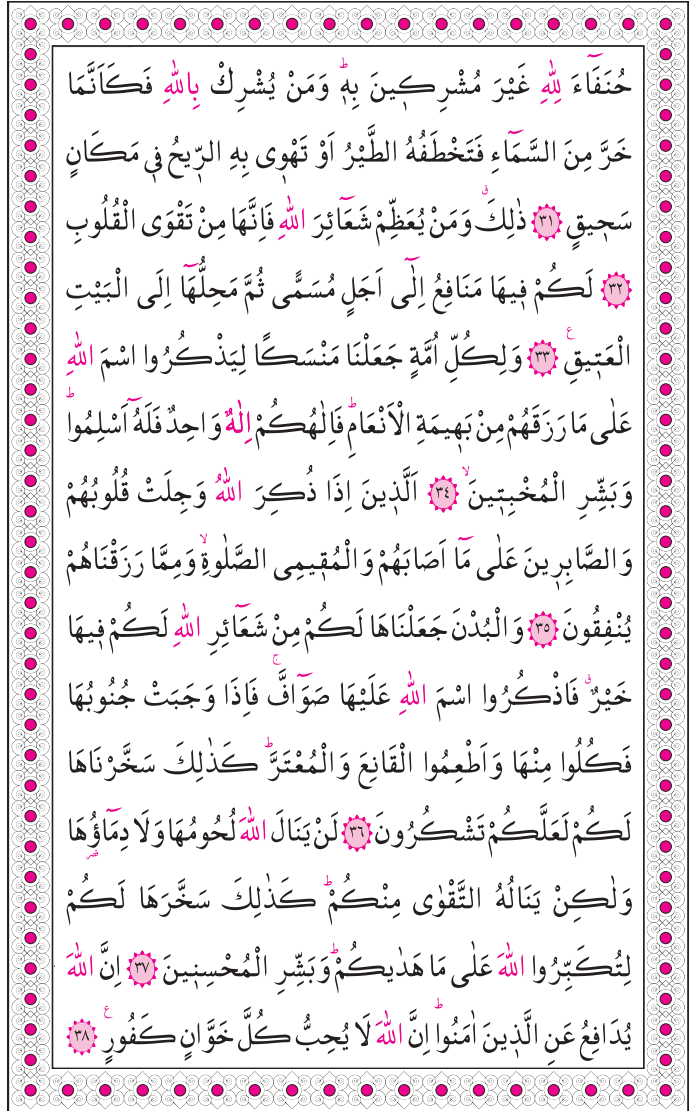 حُنَفَٓاءَ لِلّٰهِ غَيْرَ مُشْرِك۪ينَ بِه۪ۜ وَمَنْ يُشْرِكْ بِاللّٰهِ فَكَاَنَّمَا
خَرَّ مِنَ السَّمَٓاءِ فَتَخْطَفُهُ الطَّيْرُ اَوْ تَهْو۪ي بِهِ الرّ۪يحُ ف۪ي مَكَانٍ
سَح۪يقٍ ﴿٣١﴾ ذٰلِكَۗ وَمَنْ يُعَظِّمْ شَعَٓائِرَ اللّٰهِ فَاِنَّهَا مِنْ تَقْوَى الْقُلُوبِ
﴿٣٢﴾ لَكُمْ ف۪يهَا مَنَافِعُ اِلٰٓى اَجَلٍ مُسَمًّى ثُمَّ مَحِلُّهَٓا اِلَى الْبَيْتِ
الْعَت۪يقِ۟ ﴿٣٣﴾ وَلِكُلِّ اُمَّةٍ جَعَلْنَا مَنْسَكًا لِيَذْكُرُوا اسْمَ اللّٰهِ
عَلٰى مَا رَزَقَهُمْ مِنْ بَه۪يمَةِ الْاَنْعَامِۜ فَاِلٰهُكُمْ اِلٰهٌ وَاحِدٌ فَلَهُٓ اَسْلِمُواۜ
وَبَشِّرِ الْمُخْبِت۪ينَۙ ﴿٣٤﴾ اَلَّذ۪ينَ اِذَا ذُكِرَ اللّٰهُ وَجِلَتْ قُلُوبُهُمْ
وَالصَّابِر۪ينَ عَلٰى مَٓا اَصَابَهُمْ وَالْمُق۪يمِي الصَّلٰوةِۙ وَمِمَّا رَزَقْنَاهُمْ
يُنْفِقُونَ ﴿٣٥﴾ وَالْبُدْنَ جَعَلْنَاهَا لَكُمْ مِنْ شَعَٓائِرِ اللّٰهِ لَكُمْ ف۪يهَا
خَيْرٌۗ فَاذْكُرُوا اسْمَ اللّٰهِ عَلَيْهَا صَوَٓافَّۚ فَاِذَا وَجَبَتْ جُنُوبُهَا
فَكُلُوا مِنْهَا وَاَطْعِمُوا الْقَانِعَ وَالْمُعْتَرَّۜ كَذٰلِكَ سَخَّرْنَاهَا
لَكُمْ لَعَلَّكُمْ تَشْكُرُونَ ﴿٣٦﴾ لَنْ يَنَالَ اللّٰهَ لُحُومُهَا وَلَا دِمَٓاؤُ۬هَا
وَلٰكِنْ يَنَالُهُ التَّقْوٰى مِنْكُمْۜ كَذٰلِكَ سَخَّرَهَا لَكُمْ
لِتُكَبِّرُوا اللّٰهَ عَلٰى مَا هَدٰيكُمْۜ وَبَشِّرِ الْمُحْسِن۪ينَ ﴿٣٧﴾ اِنَّ اللّٰهَ
يُدَافِعُ عَنِ الَّذ۪ينَ اٰمَنُواۜ اِنَّ اللّٰهَ لَا يُحِبُّ كُلَّ خَوَّانٍ كَفُورٍ۟ ﴿٣٨﴾